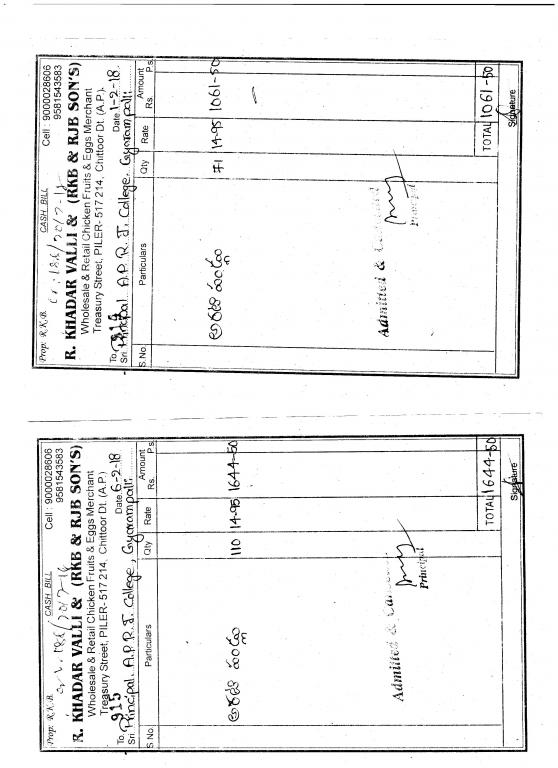 Prop: R.K.B.
CASH BILL
Cell : 9000028606
9581543583
R. KHADAR VALLI & (RKB & RJB SON'S)
Wholesale & Retail Chicken Fruits & Eggs Merchant
Treasury Street, PILER- 517 214, Chittoor Dt. (A.P.)
To, Date 1-2-18
Sri Principal A.P.R.J. College, Gyarampalli
S.No. Particulars Qty Rate Amount
Rs. Ps.
అరటి పండ్లు 71 14-95 1061-50
Admitted &
Principal
TOTAL 1061-50
Signature
Prop: R.K.B.
CASH BILL
Cell : 9000028606
9581543583
R. KHADAR VALLI & (RKB & RJB SON'S)
Wholesale & Retail Chicken Fruits & Eggs Merchant
Treasury Street, PILER- 517 214, Chittoor Dt. (A.P.)
To, 915 Date 6-2-18
Sri Principal A.P.R.J. College, Gyarampalli
S.No. Particulars Qty Rate Amount
Rs. Ps.
అరటి పండ్లు 110 14-95 1644-50
Admitted &
Principal
TOTAL 1644-50
Signature